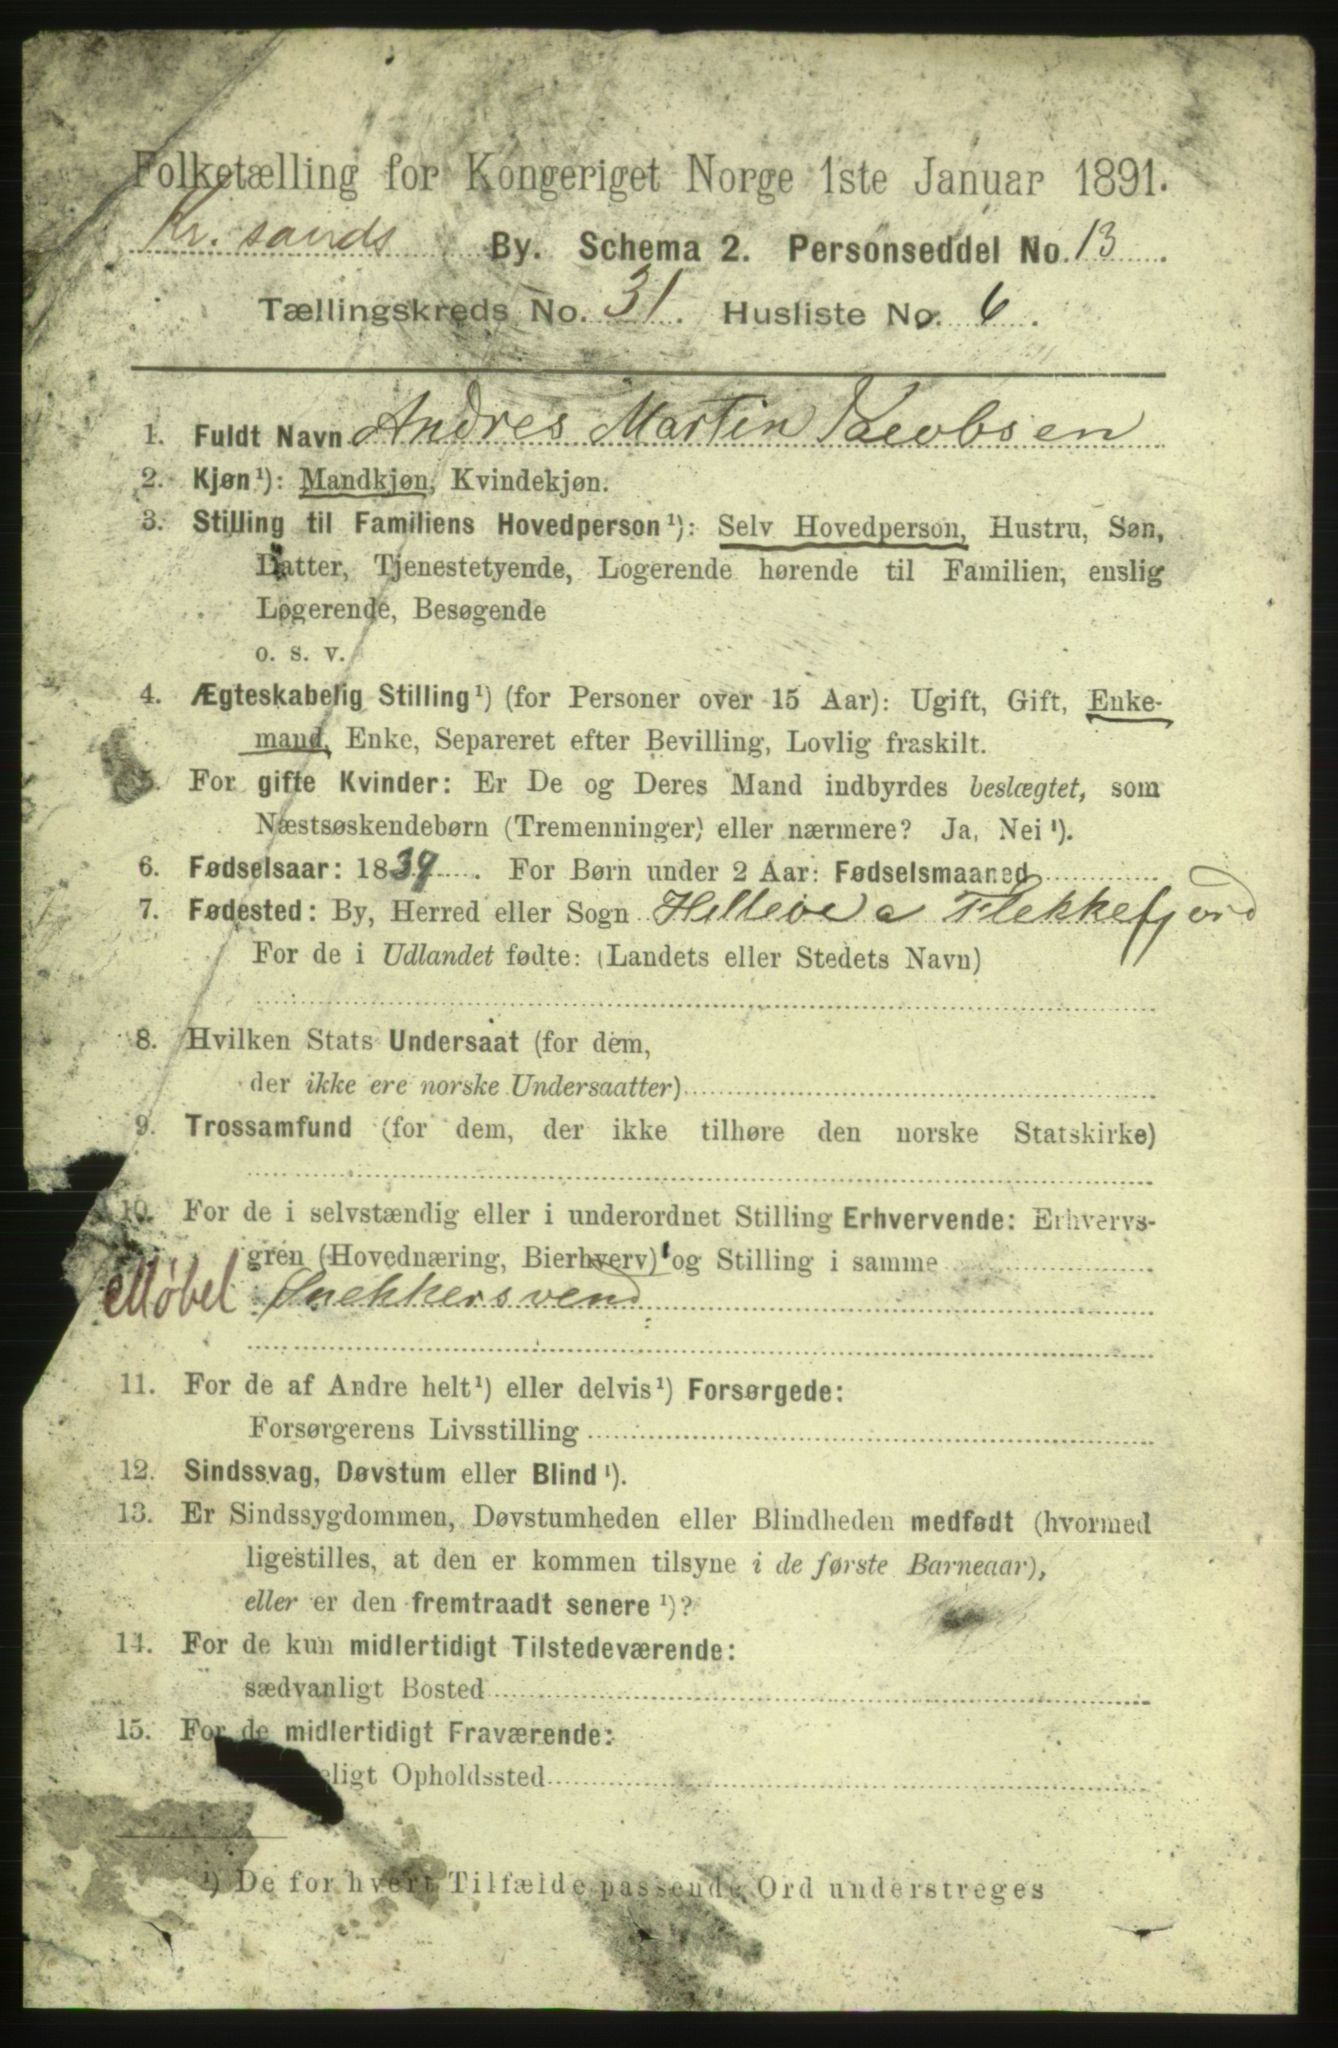 Folketælling for Kongeriget Norge 1ste Januar 1891.
Kr. sands By. Schema 2. Personseddel No. 13
Tællingskreds No. 31. Husliste No. 6.
1. Fuldt Navn Andres Martin Jacobsen
2. Kjøn¹): Mandkjøn, Kvindekjøn.
3. Stilling til Familiens Hovedperson¹): Selv Hovedperson, Hustru, Søn,
Datter, Tjenestetyende, Logerende hørende til Familien, enslig
Logerende, Besøgende
o. s. v.
4. Ægteskabelig Stilling¹) (for Personer over 15 Aar): Ugift, Gift, Enke-
mand, Enke, Separeret efter Bevilling, Lovlig fraskilt.
5. For gifte Kvinder: Er De og Deres Mand indbyrdes beslægtet, som
Næstsøskendebørn (Tremenninger) eller nærmere? Ja, Nei¹).
6. Fødselsaar: 1839. For Børn under 2 Aar: Fødselsmaaned
7. Fødested: By, Herred eller Sogn Flekkefjord
For de i Udlandet fødte: (Landets eller Stedets Navn)
8. Hvilken Stats Undersaat (for dem,
der ikke ere norske Undersaatter)
9. Trossamfund (for dem, der ikke tilhøre den norske Statskirke)
10. For de i selvstændig eller i underordnet Stilling Erhvervende: Erhvervs-
gren (Hovednæring, Bierhverv) og Stilling i samme
Møbel Snekkersvend
11. For de af Andre helt¹) eller delvis¹) Forsørgede:
Forsørgerens Livsstilling
12. Sindssvag, Døvstum eller Blind¹).
13. Er Sindssygdommen, Døvstumheden eller Blindheden medfødt (hvormed
ligestilles, at den er kommen tilsyne i de første Barneaar),
eller er den fremtraadt senere¹)?
14. For de kun midlertidigt Tilstedeværende:
sædvanligt Bosted
15. For de midlertidigt Fraværende:
eligt Opholdssted
¹) De for hvert Tilfælde passende Ord understreges